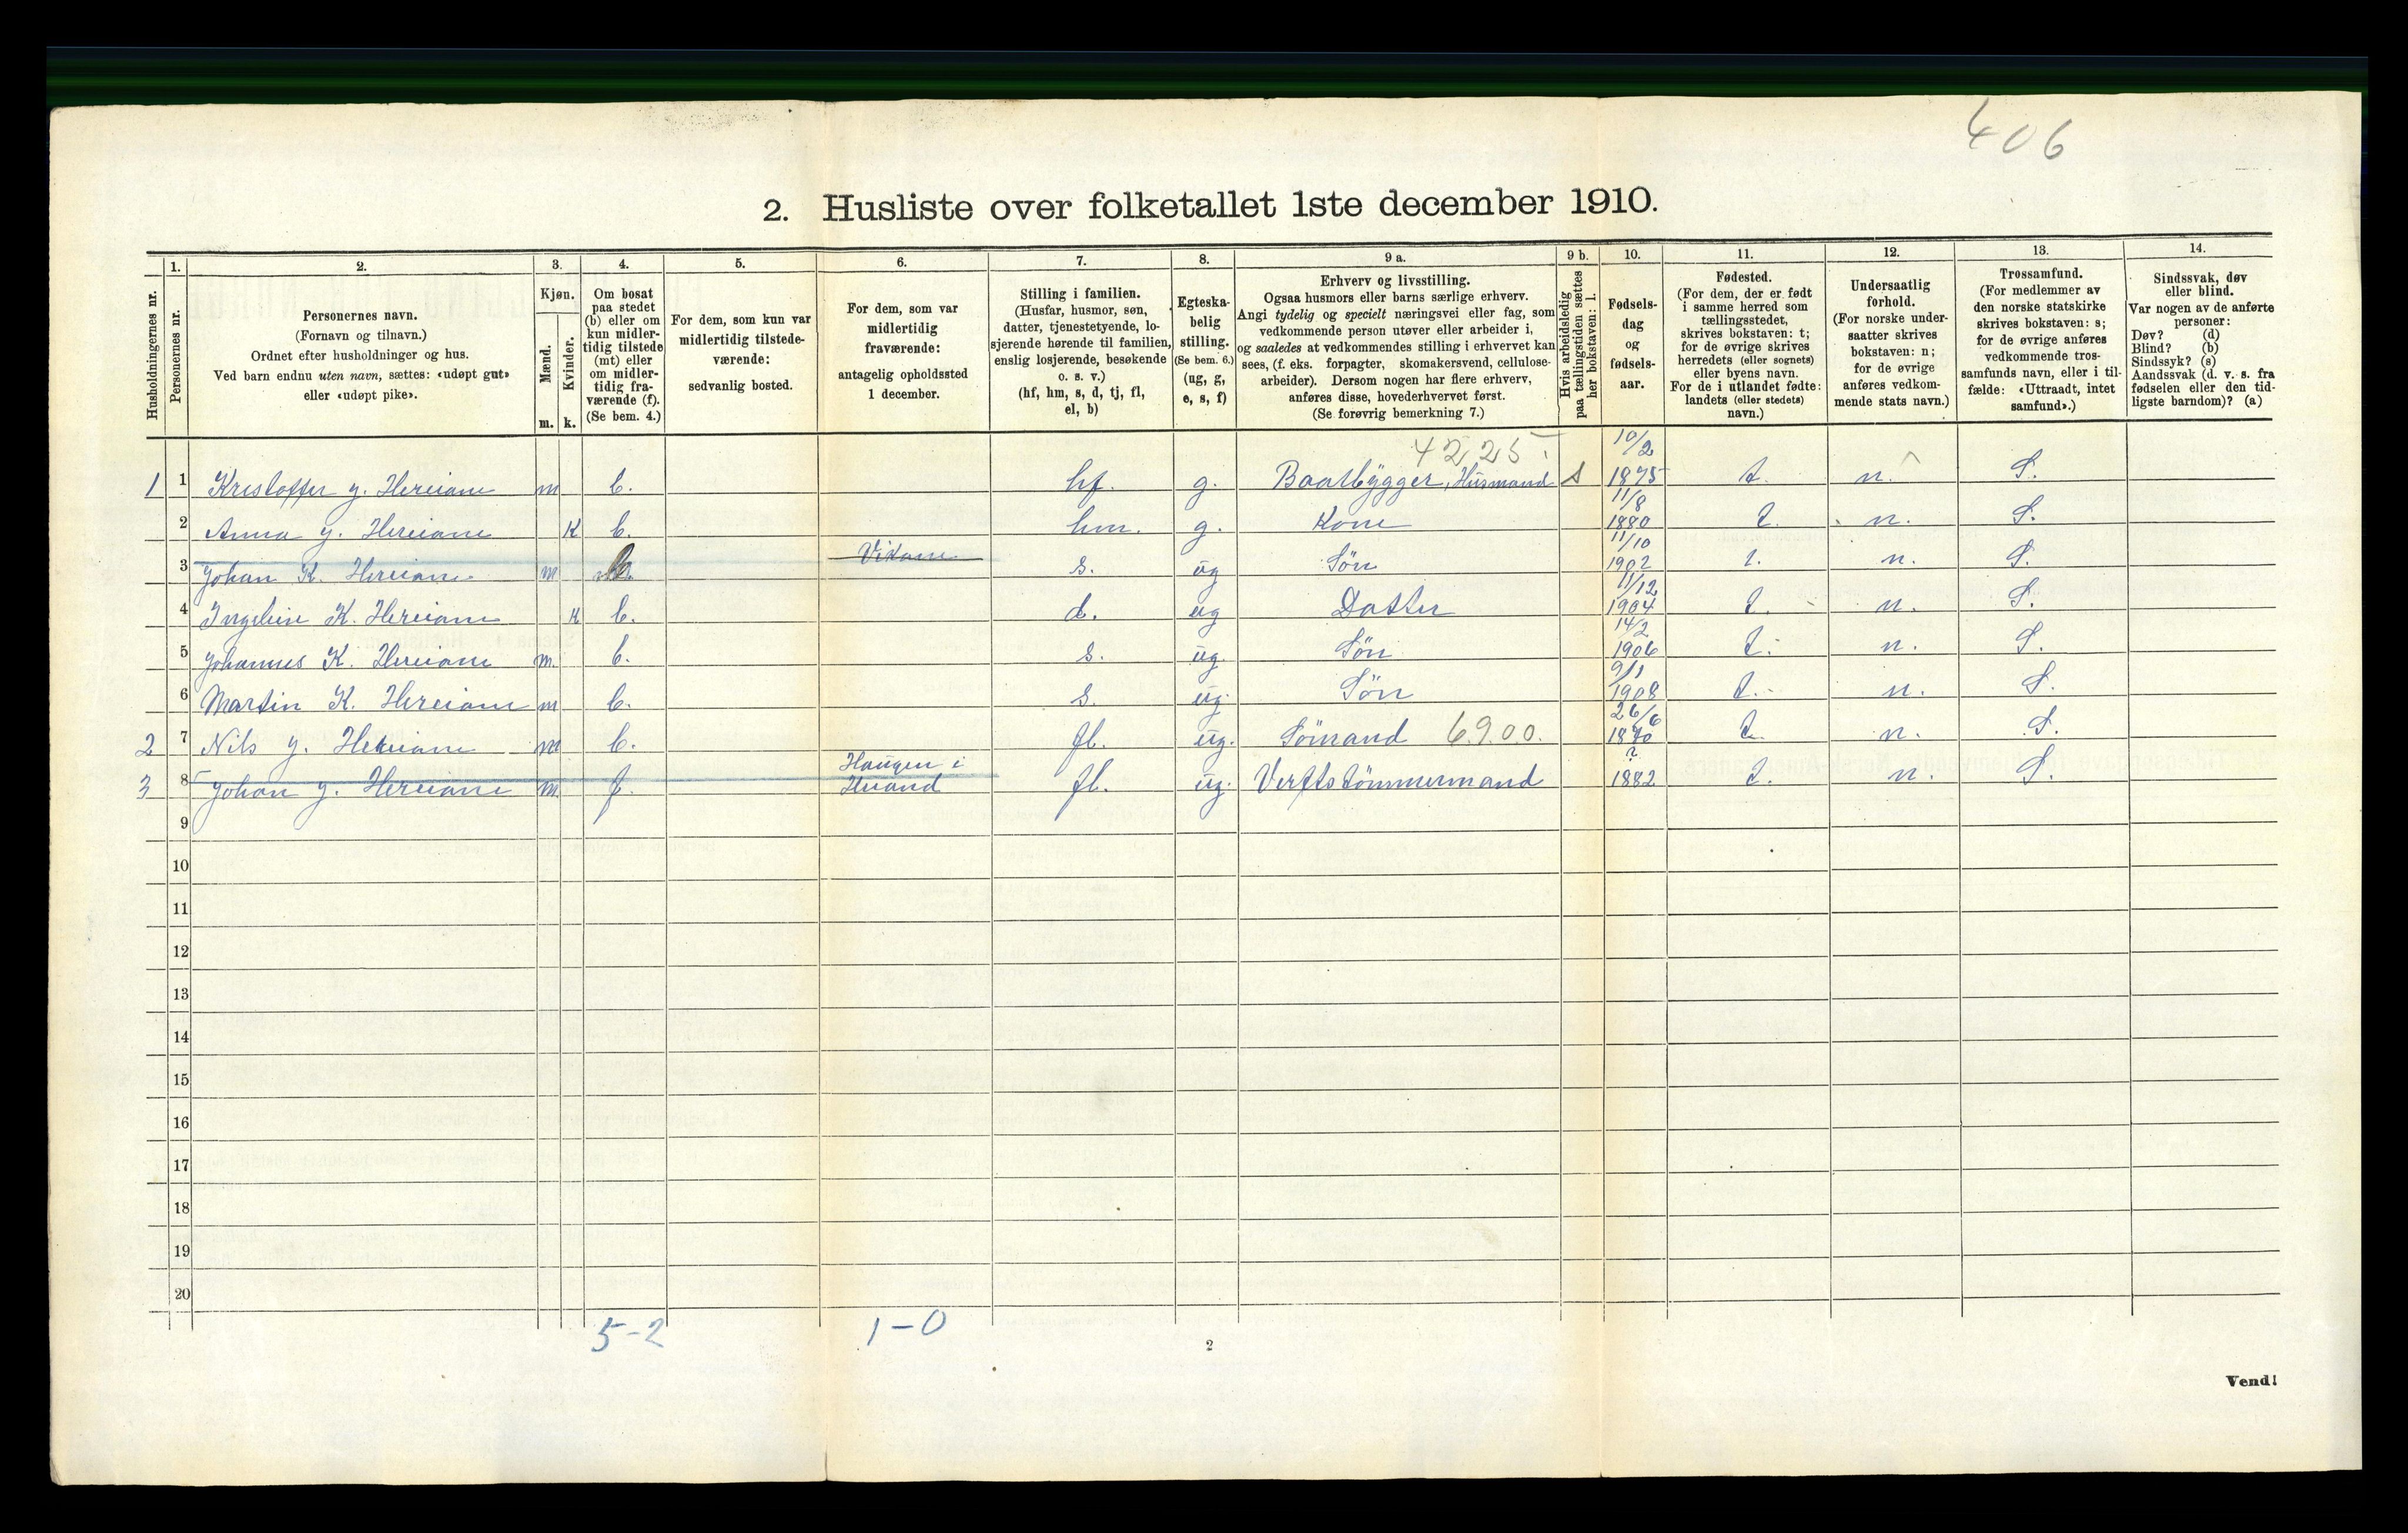 406
2. Husliste over folketallet 1ste december 1910.
Husholdningernes nr.
1.
Personernes nr.
2.
Personernes navn.
(Fornavn og tilnavn.)
Ordnet efter husholdninger og hus.
Ved barn endnu uten navn, sættes: «udøpt gut»
eller «udøpt pike».
3.
Kjøn.
Mænd.
Kvinder.
m. k.
4.
Om bosat
paa stedet
(b) eller om
kun midler-
tidig tilstede
(mt) eller
om midler-
tidig fra-
værende (f).
(Se bem. 4.)
5.
For dem, som kun var
midlertidig tilstede-
værende:
sedvanlig bosted.
6.
For dem, som var
midlertidig
fraværende:
antagelig opholdssted
1 december.
7.
Stilling i familien.
(Husfar, husmor, søn,
datter, tjenestetyende, lo-
sjerende hørende til familien,
enslig losjerende, besøkende
o. s. v.)
(hf, hm, s, d, tj, fl,
el, b)
8.
Egteska-
belig
stilling.
(Se bem. 6.)
(ug, g,
e, s, f)
9 a.
Erhverv og livsstilling.
Ogsaa husmors eller barns særlige erhverv.
Angi tydelig og specielt næringsvei eller fag, som
vedkommende person utøver eller arbeider i,
og saaledes at vedkommendes stilling i erhvervet kan
sees, (f. eks. forpagter, skomakersvend, cellulose-
arbeider). Dersom nogen har flere erhverv,
anføres disse, hovederhvervet først.
(Se forøvrig bemerkning 7.)
9 b.
Hvis arbeidsledig
paa tællingstiden sættes
her bokstaven: l.
10.
Fødsels-
dag
og
fødsels-
aar.
11.
Fødested.
(For dem, der er født
i samme herred som
tællingsstedet,
skrives bokstaven: t;
for de øvrige skrives
herredets (eller sognets)
eller byens navn.
For de i utlandet fødte:
landets (eller stedets)
navn.)
12.
Undersaatlig
forhold.
(For norske under-
saatter skrives
bokstaven: n;
for de øvrige
anføres vedkom-
mende stats navn.)
13.
Trossamfund.
(For medlemmer av
den norske statskirke
skrives bokstaven: s;
for de øvrige anføres
vedkommende tros-
samfunds navn, eller i til-
fælde: «Uttraadt, intet
samfund».)
14.
Sindssvak, døv
eller blind.
Var nogen av de anførte
personer:
Døv? (d)
Blind? (b)
Sindssyk? (s)
Aandssvak (d. v. s. fra
fødselen eller den tid-
ligste barndom)? (a)
4225. 10/2
1 1 Kristoffer J. Hereiane m b. hf. g. Baatbygger, Husmand 1875 t. n. S.
11/8
2 Anna J. Hereiane K b. hm. g. Kone 1880 t. n. S.
11/10
3 Johan K. Hereiane m Vikane s. ug Søn 1902 t. n. S.
11/12
4 K. Hereiane K b. d. ug Datter 1904 t. n. S.
14/2
5 Johannes K. Hereiane m. b. s. ug. Søn 1906 t. n. S.
9/1
6 Martin K. Hereiane m b. s. ug. Søn 1908 t. n. S.
26/6
2 7 Nils J. Hereiane m b. fl. ug. Sømand 6900. 1870 t. n. S.
Haugen i ?
3 8 Johan J. Hereiane m f. fl. ug. Verftstømmermand 1882 t. n. S.
9
10
11
12
13
14
15
16
17
18
19
20
5-2 1-0
2
Vend!